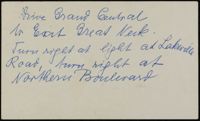 Drive Grand Central
to Exit Great Neck.
Turn right at light at Lakeville
Road, turn right at
Northern Boulevard